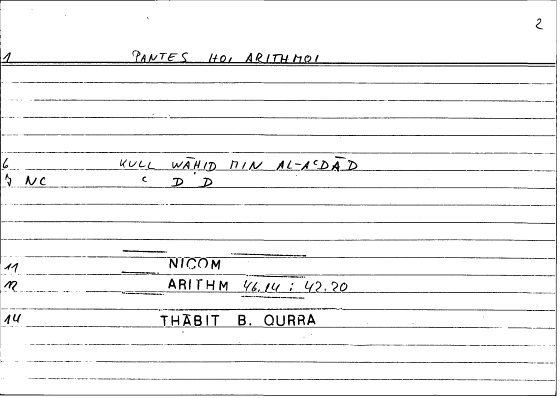 2
1 PANTES HOI ARITHMOI
6 KULL WĀḤID MIN AL-AʿDĀD
7 NC ʿ D D
11 NICOM
12 ARITHM 46.14 : 42.20
14 THĀBIT B. QURRA